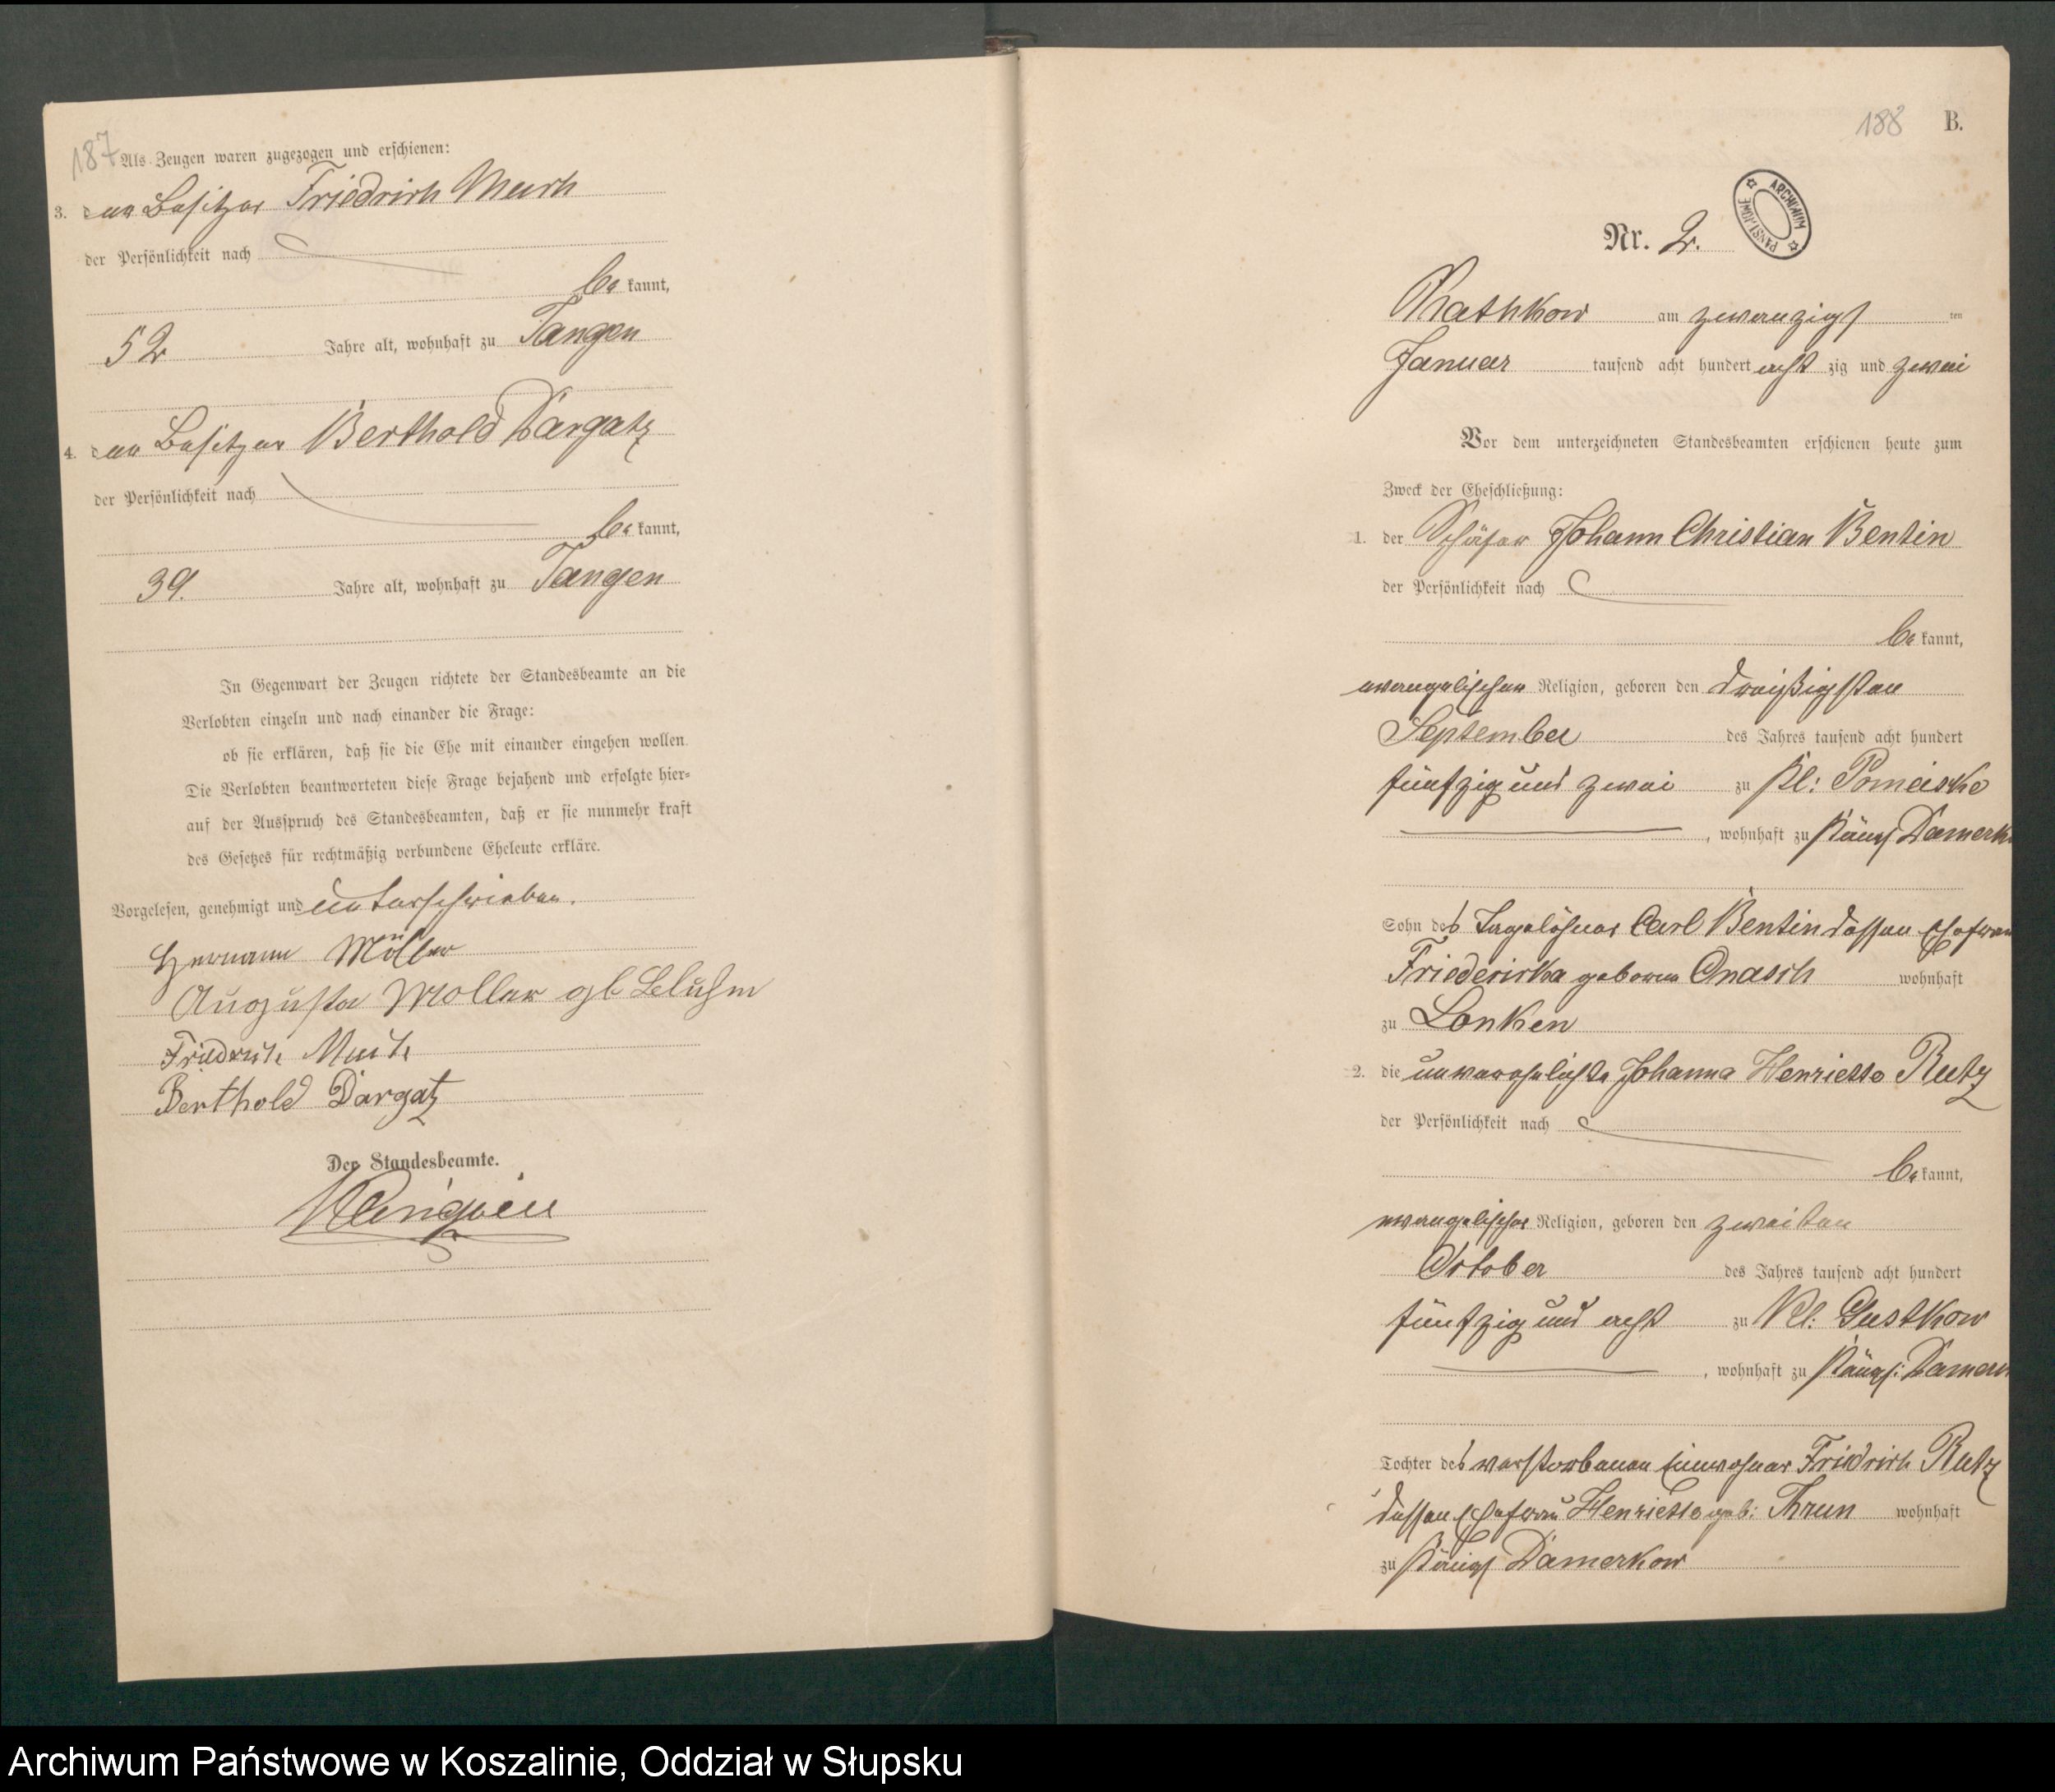 187
Als Zeugen waren zugezogen und erschienen:
3. der Besitzer Friedrich Much
der Persönlichkeit nach
be kannt,
52 Jahre alt, wohnhaft zu Tangen
4. der Besitzer Berthold Dargatz
der Persönlichkeit nach
be kannt,
39. Jahre alt, wohnhaft zu Tangen
In Gegenwart der Zeugen richtete der Standesbeamte an die
Verlobten einzeln und nach einander die Frage:
ob sie erklären, daß sie die Ehe mit einander eingehen wollen.
Die Verlobten beantworteten diese Frage bejahend und erfolgte hier=
auf der Ausspruch des Standesbeamten, daß er sie nunmehr kraft
des Gesetzes für rechtmäßig verbundene Eheleute erkläre.
Vorgelesen, genehmigt und unterschrieben.
Hermann Möller
Augusta Möller gb
Friedrich
Berthold Dargatz
Der Standesbeamte.
188 B.
ARCHIWUM PAŃSTWOWE
Nr. 2.
Rathkow am zwanzigst ten
Januar tausend acht hundert acht zig und zwei
Vor dem unterzeichneten Standesbeamten erschienen heute zum
Zweck der Eheschließung:
1. der Schäfer Johann Christian Bentin
der Persönlichkeit nach
be kannt,
evangelischer Religion, geboren den dreißigsten
September des Jahres tausend acht hundert
fünfzig und zwei zu Kl: Pomeiske
, wohnhaft zu Königl Damerk
Sohn des Tagelöhner Carl Bentin dessen Ehefrau
Friedericka geboren Onasch wohnhaft
zu Lonken
2. die unverehelichte Johanna Henriette Rutz
der Persönlichkeit nach
be kannt,
evangelischer Religion, geboren den zweiten
October des Jahres tausend acht hundert
fünfzig und acht zu Kl: Gustkow
, wohnhaft zu Königl: Damerk
Tochter des verstorbenen Einwohner Friedrich Rutz
dessen Ehefrau Henriette geb: Thrun wohnhaft
zu Königl Damerkow
Archiwum Państwowe w Koszalinie, Oddział w Słupsku